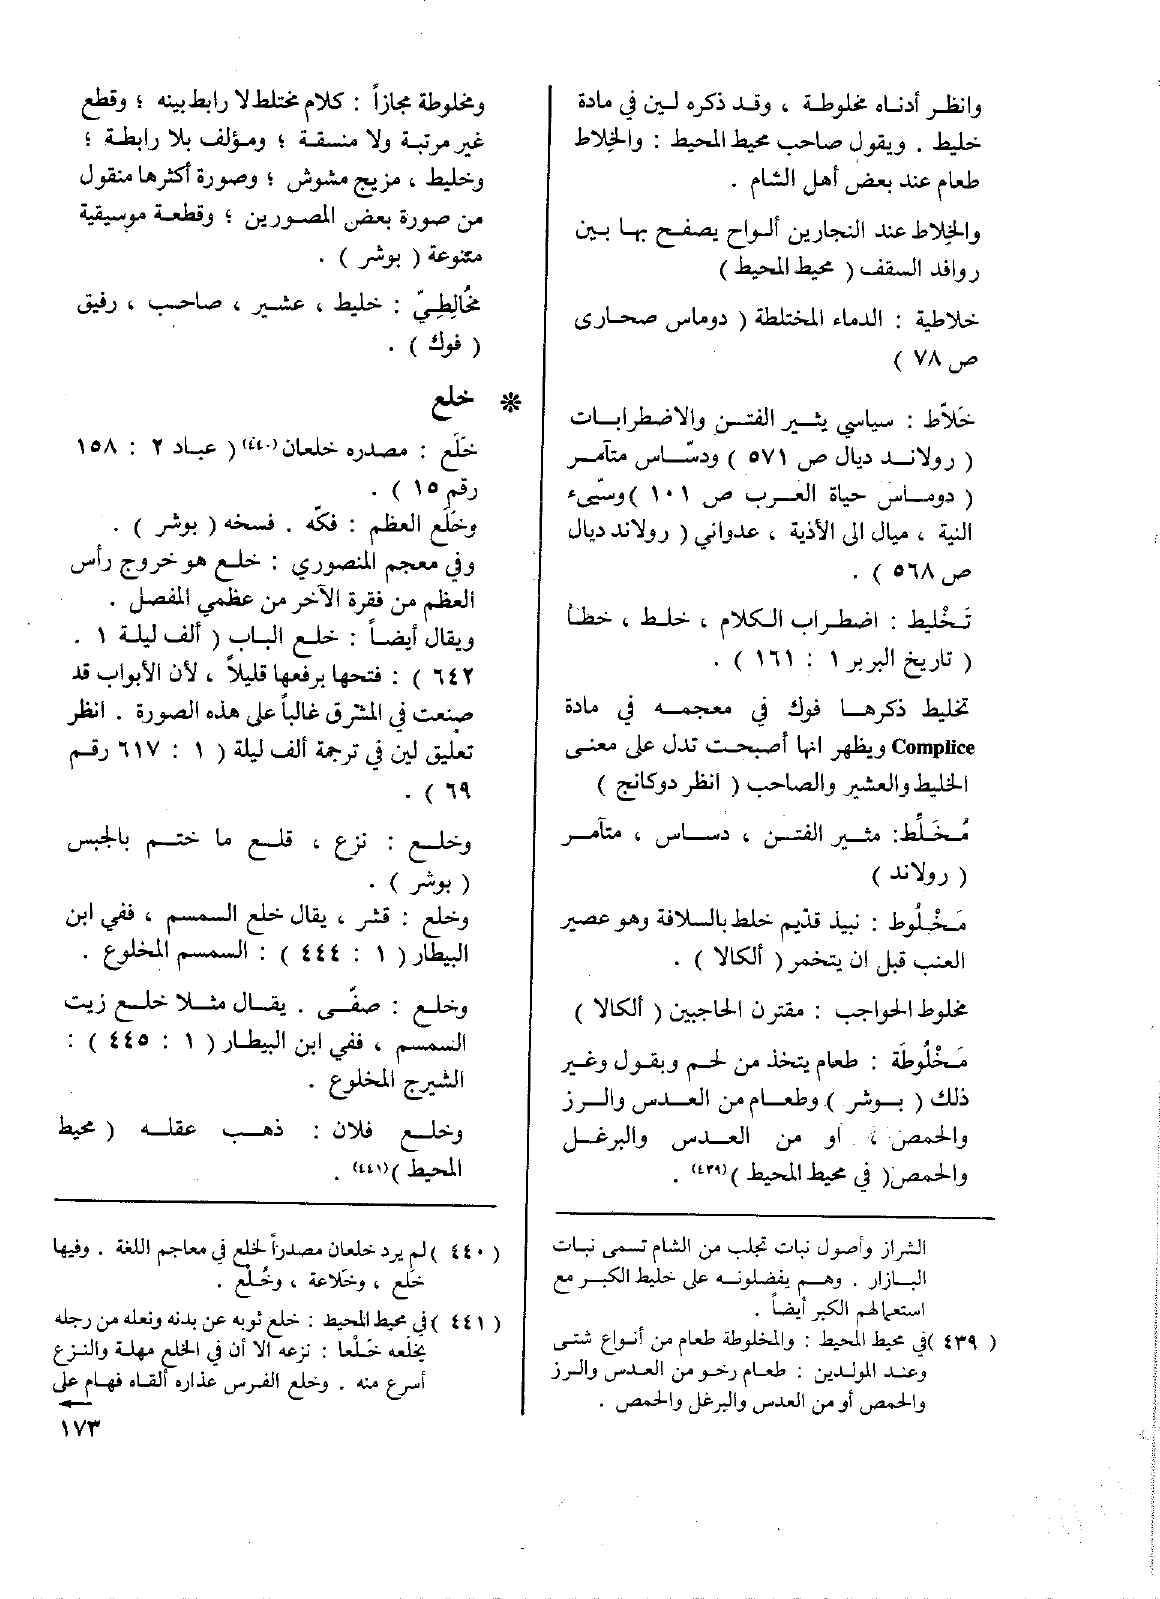 وانظر أدناه مخلوطة ، وقد ذكره لين في مادة
خليط . ويقول صاحب محيط المحيط : والخِلاط
طعام عند بعض أهل الشام .
والخِلاط عند النجارين ألواح يصفح بها بين
روافد السقف ( محيط المحيط )
خلاطية : الدماء المختلطة ( دوماس صحارى
ص ٧٨ )
خَلاّط : سياسي يثير الفتن والاضطرابات
( رولاند ديال ص ٥٧١ ) ودسّاس متآمر
( دوماس حياة العرب ص ١٠١ ) وسّيء
النية ، ميال الى الأذية ، عدواني ( رولاند ديال
ص ٥٦٨ ) .
تَخْليط : اضطراب الكلام ، خلط ، خطأ
( تاريخ البربر ١ : ١٦١ ) .
تخليط ذكرها فوك في معجمه في مادة
Complice ويظهر انها أصبحت تدل على معنى
الخليط والعشير والصاحب ( انظر دوكانج )
مُخَلِّط: مثير الفتن ، دساس ، متآمر
( رولاند )
مَخْلُوط : نبيذ قديم خلط بالسلافة وهو عصير
العنب قبل ان يتخمر ( ألكالا ) .
مخلوط الحواجب : مقترن الحاجبين ( ألكالا )
مَخْلُوطَة : طعام يتخذ من لحم وبقول وغير
ذلك ( بوشر ) وطعام من العدس والرز
والحمص ، او من العدس والبرغل
والحمص( في محيط المحيط )(٤٣٩) .
الشراز وأصول نبات تجلب من الشام تسمى نبات
البازار . وهم يفضلونه على خليط الكبر مع
استعمالهم الكبر أيضاً .
( ٤٣٩ )في محيط المحيط : والمخلوطة طعام من أنواع شتى
وعند المولدين : طعام رخو من العدس والرز
والحمص أو من العدس والبرغل والحمص .
ومخلوطة مجازاً : كلام مختلط لا رابط بينه ؛ وقطع
غير مرتبة ولا منسقة ؛ ومؤلف بلا رابطة ؛
وخليط ، مزيج مشوش ؛ وصورة أكثرها منقول
من صورة بعض المصورين ؛ وقطعة موسيقية
متنوعة ( بوشر ) .
مخُالِطِيّ : خليط ، عشير ، صاحب ، رفيق
( فوك ) .
* خلع
خَلَع : مصدره خلعان(٤٤٠)( عباد ٢ : ١٥٨
رقم ١٥ ) .
وخَلَع العظم : فكّه . فسخه ( بوشر ) .
وفي معجم المنصوري : خلع هو خروج رأس
العظم من فقرة الآخر من عظمي المفصل .
ويقال أيضاً : خلع الباب ( ألف ليلة ١ .
٦٤٢ ) : فتحها برفعها قليلاً ، لأن الأبواب قد
صنعت في المشرق غالباً على هذه الصورة . انظر
تعليق لين في ترجمة ألف ليلة ( ١ : ٦١٧ رقم
٦٩ ) .
وخلع : نزع ، قلع ما ختم بالجبس
( بوشر ) .
وخلع : قشر ، يقال خلع السمسم ، ففي ابن
البيطار ( ١ : ٤٤٤ ) : السمسم المخلوع .
وخلع : صفّى . يقال مثلا خلع زيت
السمسم ، ففي ابن البيطار ( ١ : ٤٤٥ ) :
الشيرج المخلوع .
وخلع فلان : ذهب عقله ( محيط
المحيط )(٤٤١) .
( ٤٤٠ )لم يرد خلعان مصدراً لخلع في معاجم اللغة . وفيها
خَلع ، وخَلاعة ، وخُلْع .
( ٤٤١ )في محيط المحيط : خلع ثوبه عن بدنه ونعله من رجله
يخلَعه خَلْعا : نزعه الا أن في الخلع مهلة والنزع
أسرع منه . وخلع الفرس عذاره ألقاه فهام على
١٧٣